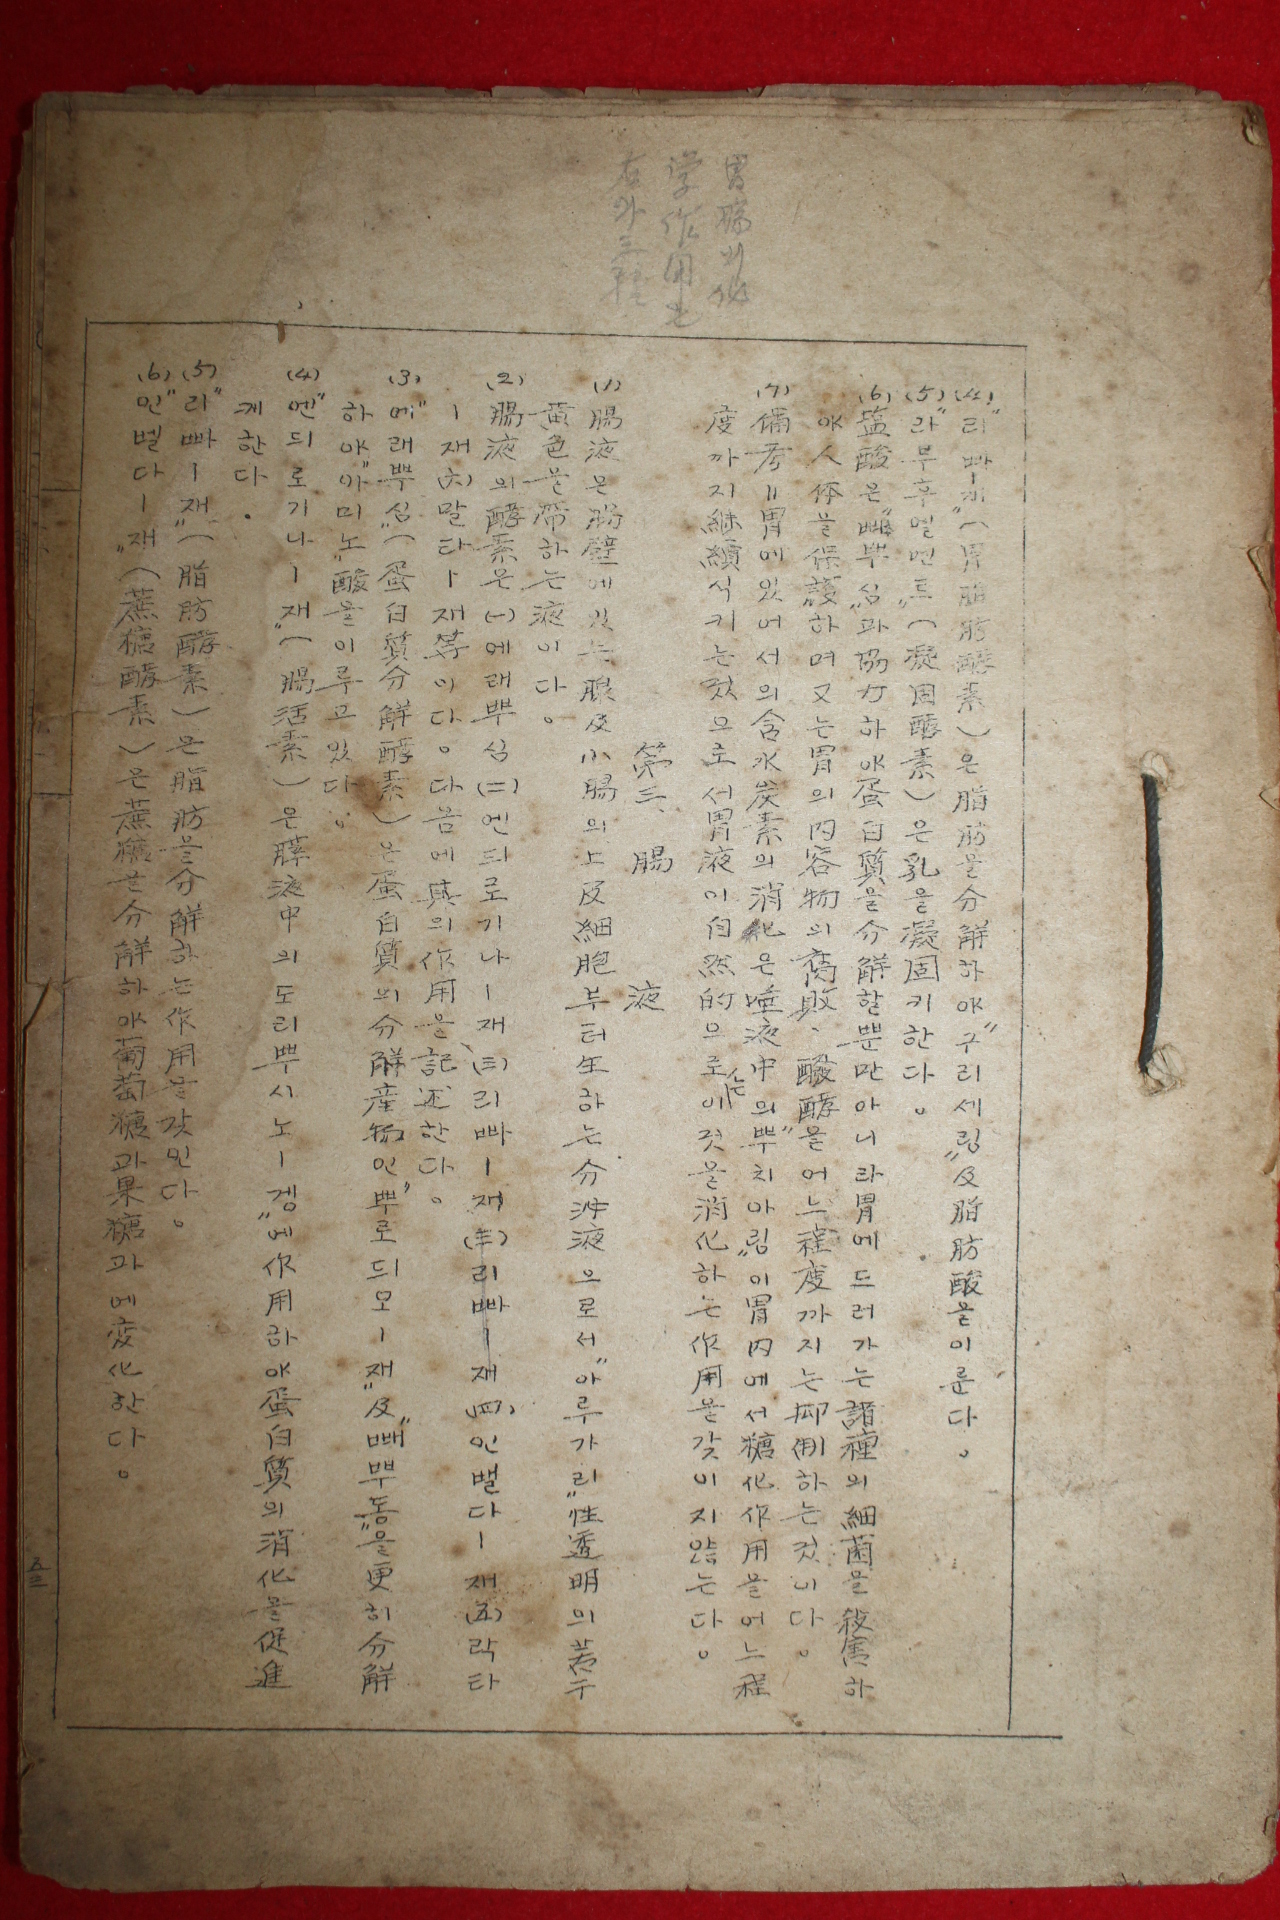 胃腸의化
学作用은
右와三種
(4)"리빠-제"(胃脂肪酵素)은脂肪을分解하야"구리세링"及脂肪酸을이룬다。
(5)"라부후엘멘트"(凝固酵素)은乳을凝固키한다。
(6)塩酸은"빼뿌심"과協力하야蛋白質을分解할뿐만아니라胃에드러가는諸種의細菌을殺害하
야人体을保護하며又는胃의內容物의腐敗、醱酵을어느程度까지는抑制하는것이다。
(7)備考=胃에있어서의含水炭素의消化은唾液中의"뿌치아링"이胃内에서糖化作用을어느程
度까지継續식키는것으로서胃液이自然的으로는이것을消化하는作用을갖이지않는다。
第三、腸液
(1)腸液은腸壁에있는腺及小腸의上皮細胞부터生하는分泌液으로서"아루가리"性透明의若干
黃色을帶하는液이다。
(2)腸液의酵素은(一)에래뿌심(二)엔듸로기나-재(三)리빠-재(三)리빠-재(四)인벨다-재(五)락타
-재(六)말타-재等이다。다음에其의作用을記述한다。
(3)"에래뿌심"(蛋白質分解酵素)은蛋白質의分解産物인"뿌로듸모-재"及"빼뿌동"을更히分解
하야"아미노"酸을이루고있다。
(4)"엔듸로기나-재"(腸活素)은膵液中의도리뿌시노-겡"에作用하야蛋白質의消化을促進
케한다.
(5)"리빠-재"(脂肪酵素)은脂肪을分解하는作用을갖인다。
(6)"인벨다-재"(蔗糖酵素)은蔗糖을分解하야葡萄糖과果糖과에変化한다。